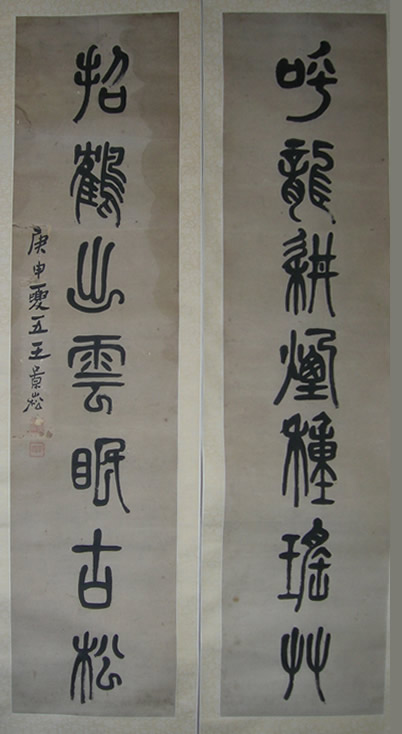 呼龍耕煙種瑤艸
招鶴出雲眠古松
庚申夏五王景崧